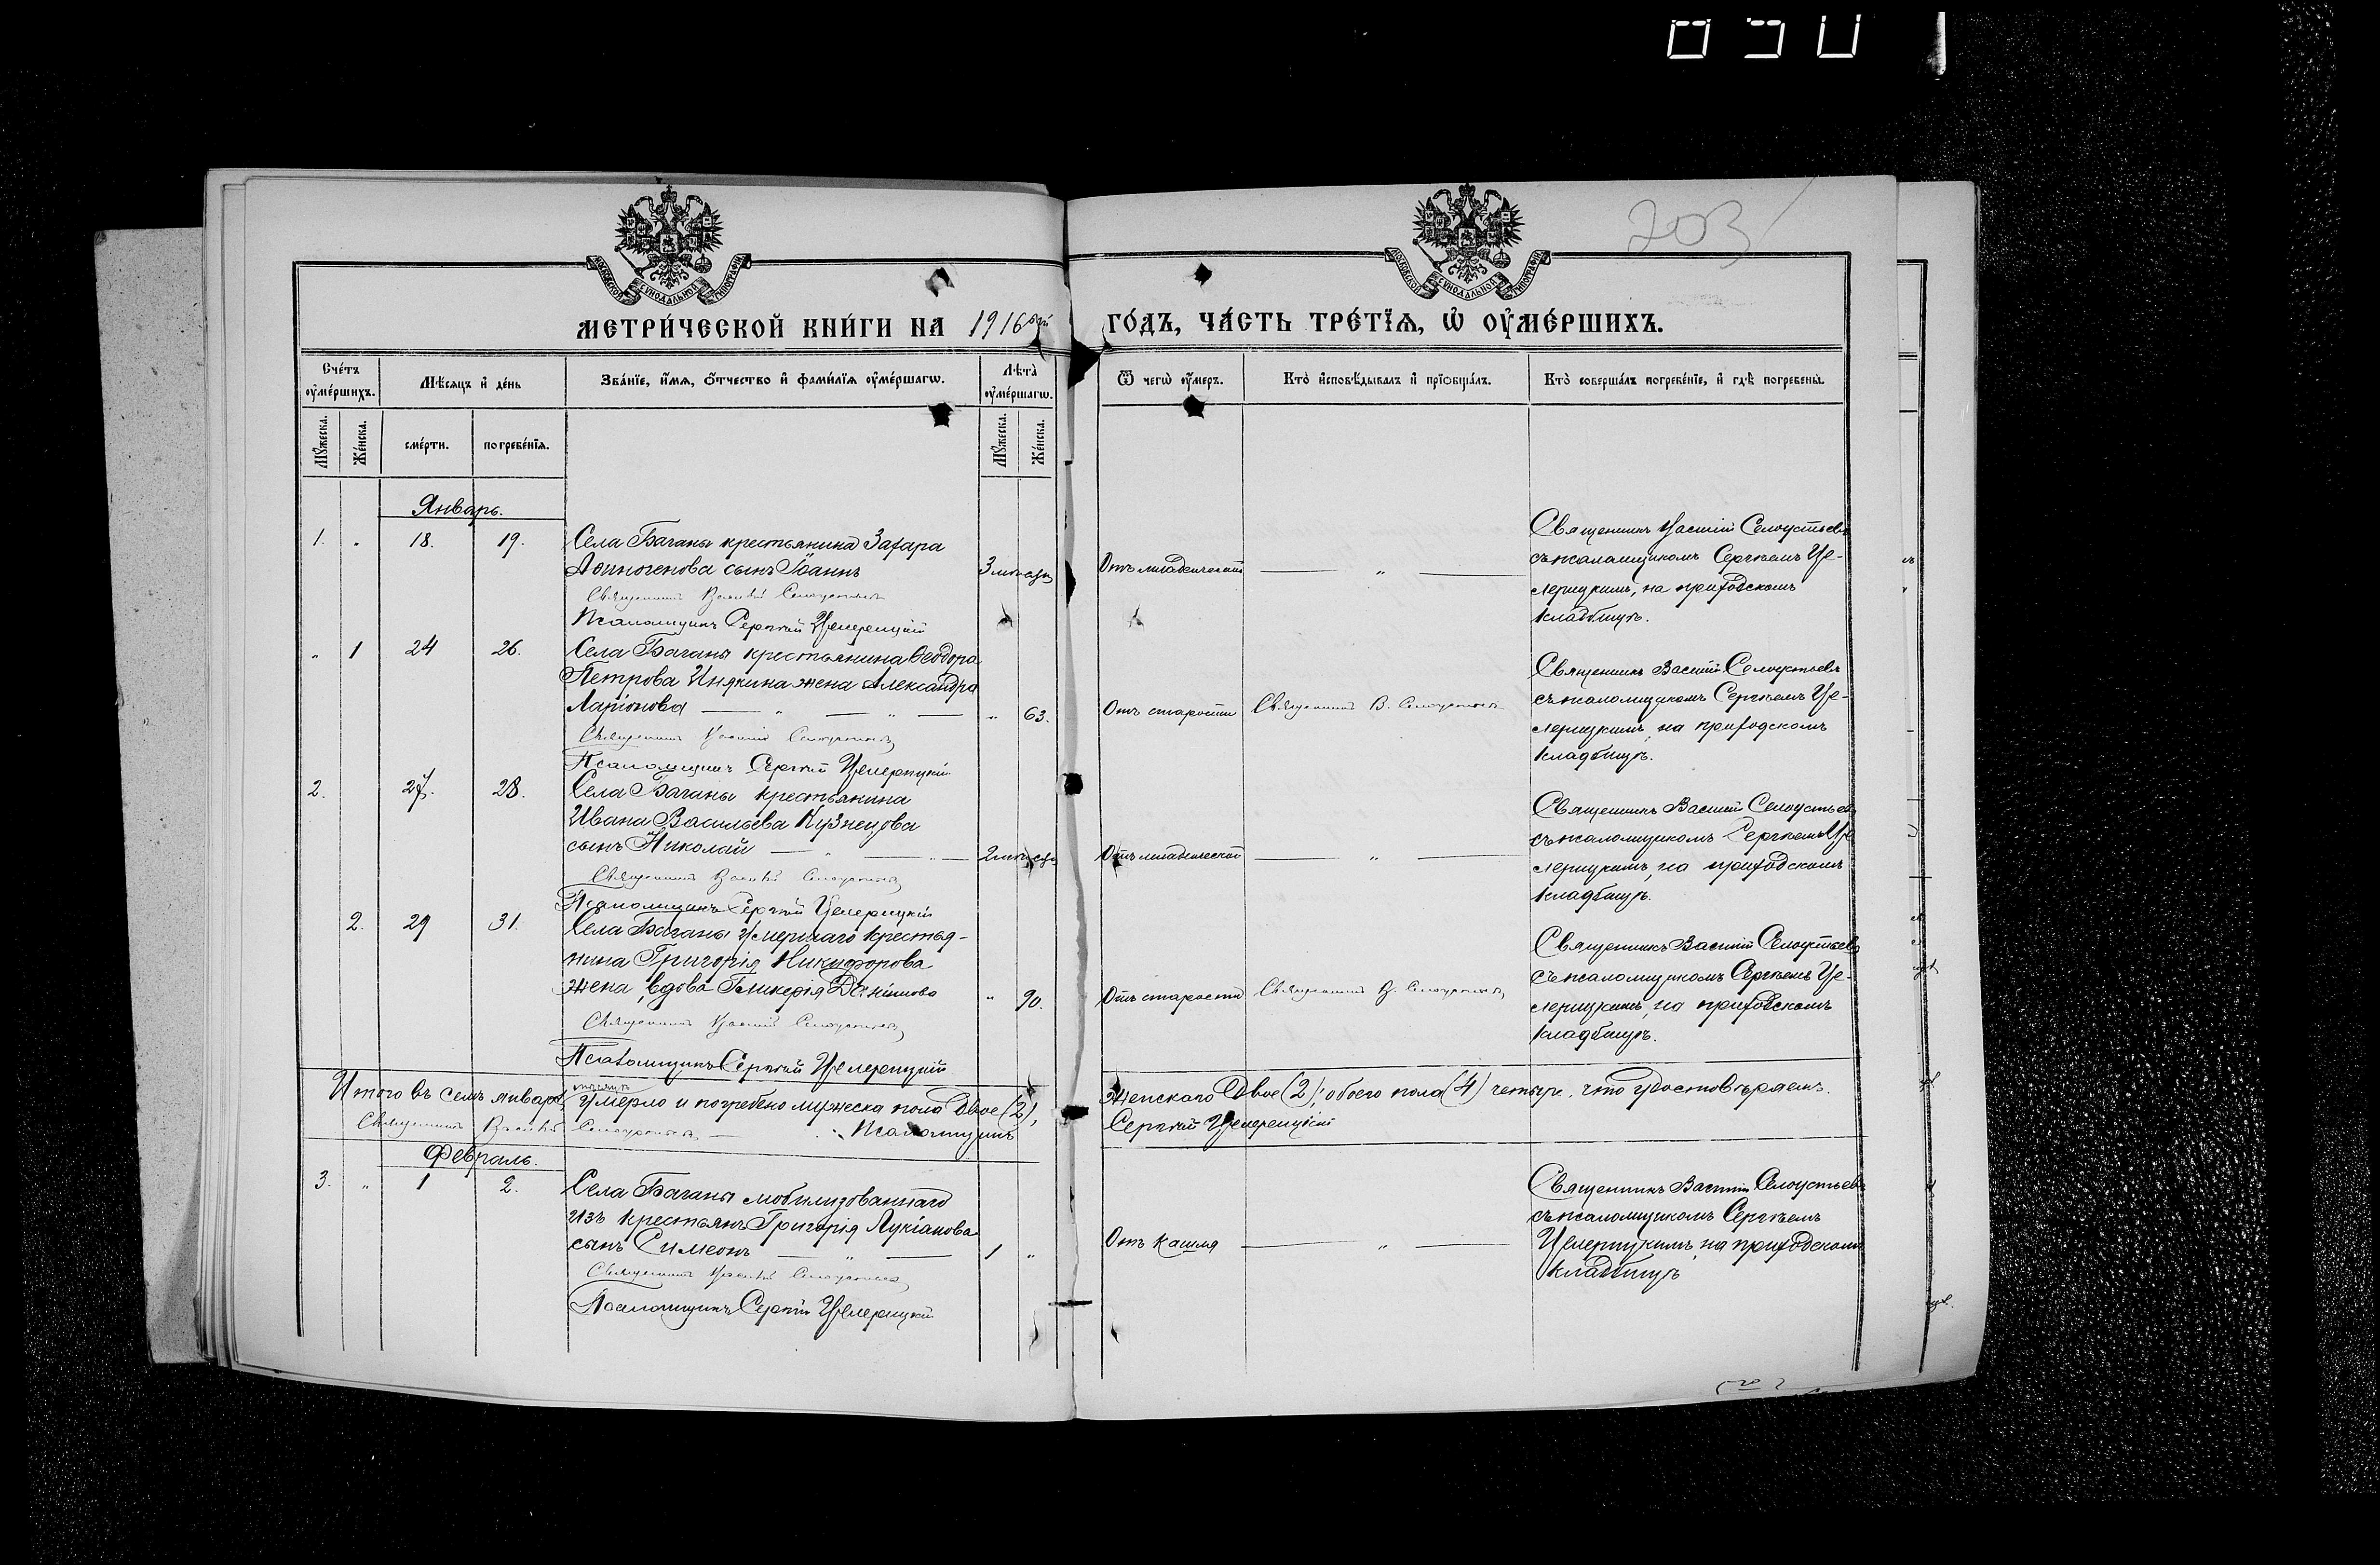 203
МОСКОВСКОЙ СѴНОДАЛЬНОЙ ТИПОГРАФІИ
МОСКОВСКОЙ СѴНОДАЛЬНОЙ ТИПОГРАФІИ
МЕТРИ́ЧЕСКОЙ КНИ́ГИ НА 1916ый ГО́ДЪ, ЧА́СТЬ ТРЕ́ТЇѦ, Ѡ҆ ОУ҆МЕ́РШИХЪ.
Сче́тъ оу҆ме́ршихъ.
Мѣ́сяцъ и҆ де́нь
Зва́нїе, и҆́мѧ, ѻ҆́тчество и҆ фами́лїѧ оу҆ме́ршагѡ.
Лѣ́та оу҆ме́ршагѡ.
Ѿ чегѡ̀ оу҆́меръ.
Кто̀ и҆сповѣ́дывалъ и҆ прїѡбща́лъ.
Кто̀ соверша́лъ погребе́нїе, и҆ гдѣ̀ погребены̀.
Мꙋ́жеска.
Же́нска.
сме́рти.
погребе́нїѧ.
Мꙋ́жеска.
Же́нска.
Январь.
1. „ 18. 19. Села Баганы крестьянина Захара
Аѳиногенова сынъ Іоаннъ 3 мѣсяц
Священникъ Василій Селоустьевъ
Псаломщикъ Сергѣй Цѣлерицкій
Отъ младенческой „
Священникъ Василій Селоустьевъ
съ псаломщикомъ Сергѣемъ Це-
лерицкимъ, на приходскомъ
кладбищѣ.
„ 1 24 26. Села Баганы крестьянина Ѳеодора
Петрова Инякина жена Александра
Ларіонова „ „ „ 63.
Священникъ Василій Селоустьевъ
Псаломщикъ Сергѣй Целерицкій
Отъ старости Священникъ В. Селоустьевъ
Священникъ Василій Селоустьевъ
съ псаломщикомъ Сергѣемъ Це-
лерицкимъ, на приходскомъ
кладбищѣ.
2. 27. 28. Села Баганы крестьянина
Ивана Васильева Кузнецова
сынъ Николай „ „ 2 мѣсяц
Священникъ Василій Селоустьевъ
Псаломщикъ Сергѣй Целерицкій
Отъ младенческой „
Священникъ Василій Селоустьевъ
съ псаломщикомъ Сергѣемъ Це
лерицкимъ, на приходскомъ
кладбищѣ.
2. 29 31. Села Баганы умершаго крестья-
нина Григорія Никифорова
жена, вдова Гликерія Данилова „ 90.
Священникъ Василій Селоустьевъ
Псаломщикъ Сергѣй Целерицкій
Отъ старости Священникъ В. Селоустьевъ
Священникъ Василій Селоустьевъ
съ псаломщикомъ Сергѣемъ Це-
лерицкимъ, на приходскомъ
кладбищѣ.
Итого въ семъ январѣ мѣсяцѣ умерло и погребено мужеска пола двое (2), женскаго двое (2); обоего пола (4) четыре, что удостовѣряемъ.
Священникъ Василій Селоустьевъ Псаломщикъ Сергѣй Целерицкій
Февраль.
3. „ 1 2. Села Баганы мобилизованнаго
изъ крестьянъ Григорія Лукіанова
сынъ Симеонъ „ 1 „
Священникъ Василій Селоустьевъ
Псаломщикъ Сергѣй Целерицкій
Отъ кашля „
Священникъ Василій Селоустьевъ
съ псаломщикомъ Сергѣемъ
Целерицкимъ, на приходскомъ
кладбищѣ